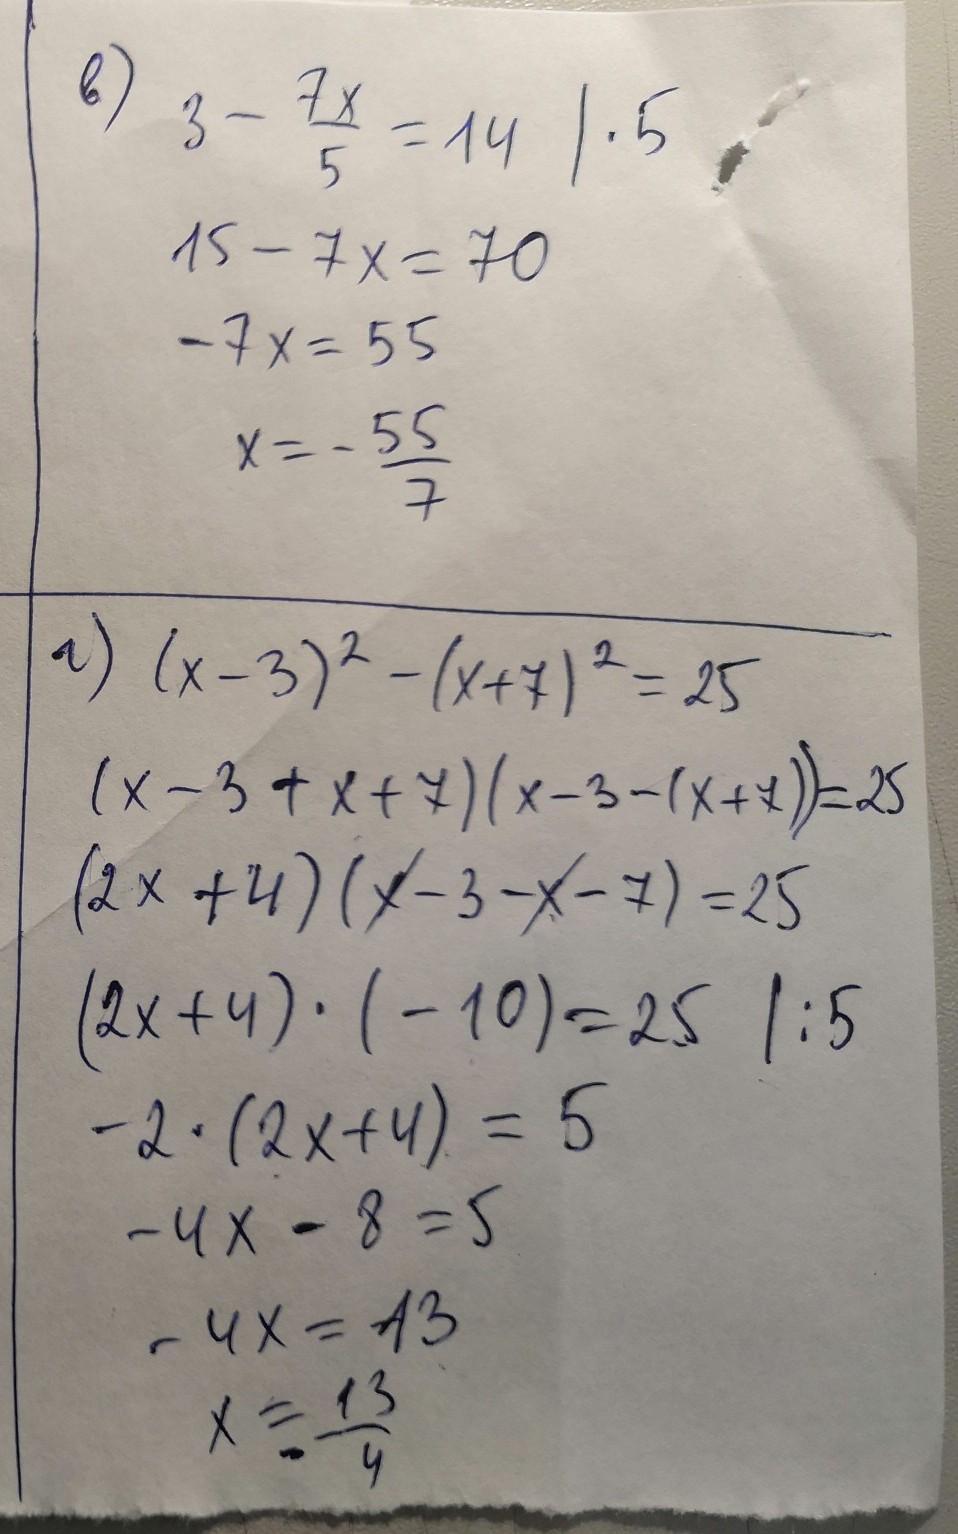 в) 3 - 7x/5 = 14 | · 5
15 - 7x = 70
-7x = 55
x = - 55/7
г) (x - 3)² - (x + 7)² = 25
(x - 3 + x + 7)(x - 3 - (x + 7)) = 25
(2x + 4)(x - 3 - x - 7) = 25
(2x + 4) · (-10) = 25 | : 5
-2 · (2x + 4) = 5
-4x - 8 = 5
-4x = 13
x = - 13/4